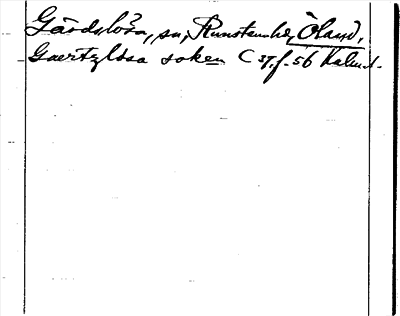 Gärdslösa, sn, Runstens hd, Öland.
Gaertzløsa soken C 37, f. 56 Kalm.